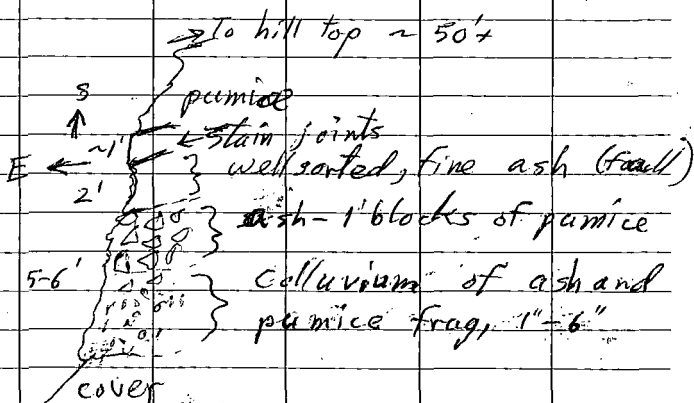 To hill top ~ 50'+
S
pumice
~1'
stain joints
E
well sorted, fine ash (fall)
2'
ash - 1' blocks of pumice
5-6'
colluvium of ash and
pumice frag, 1"-6"
cover